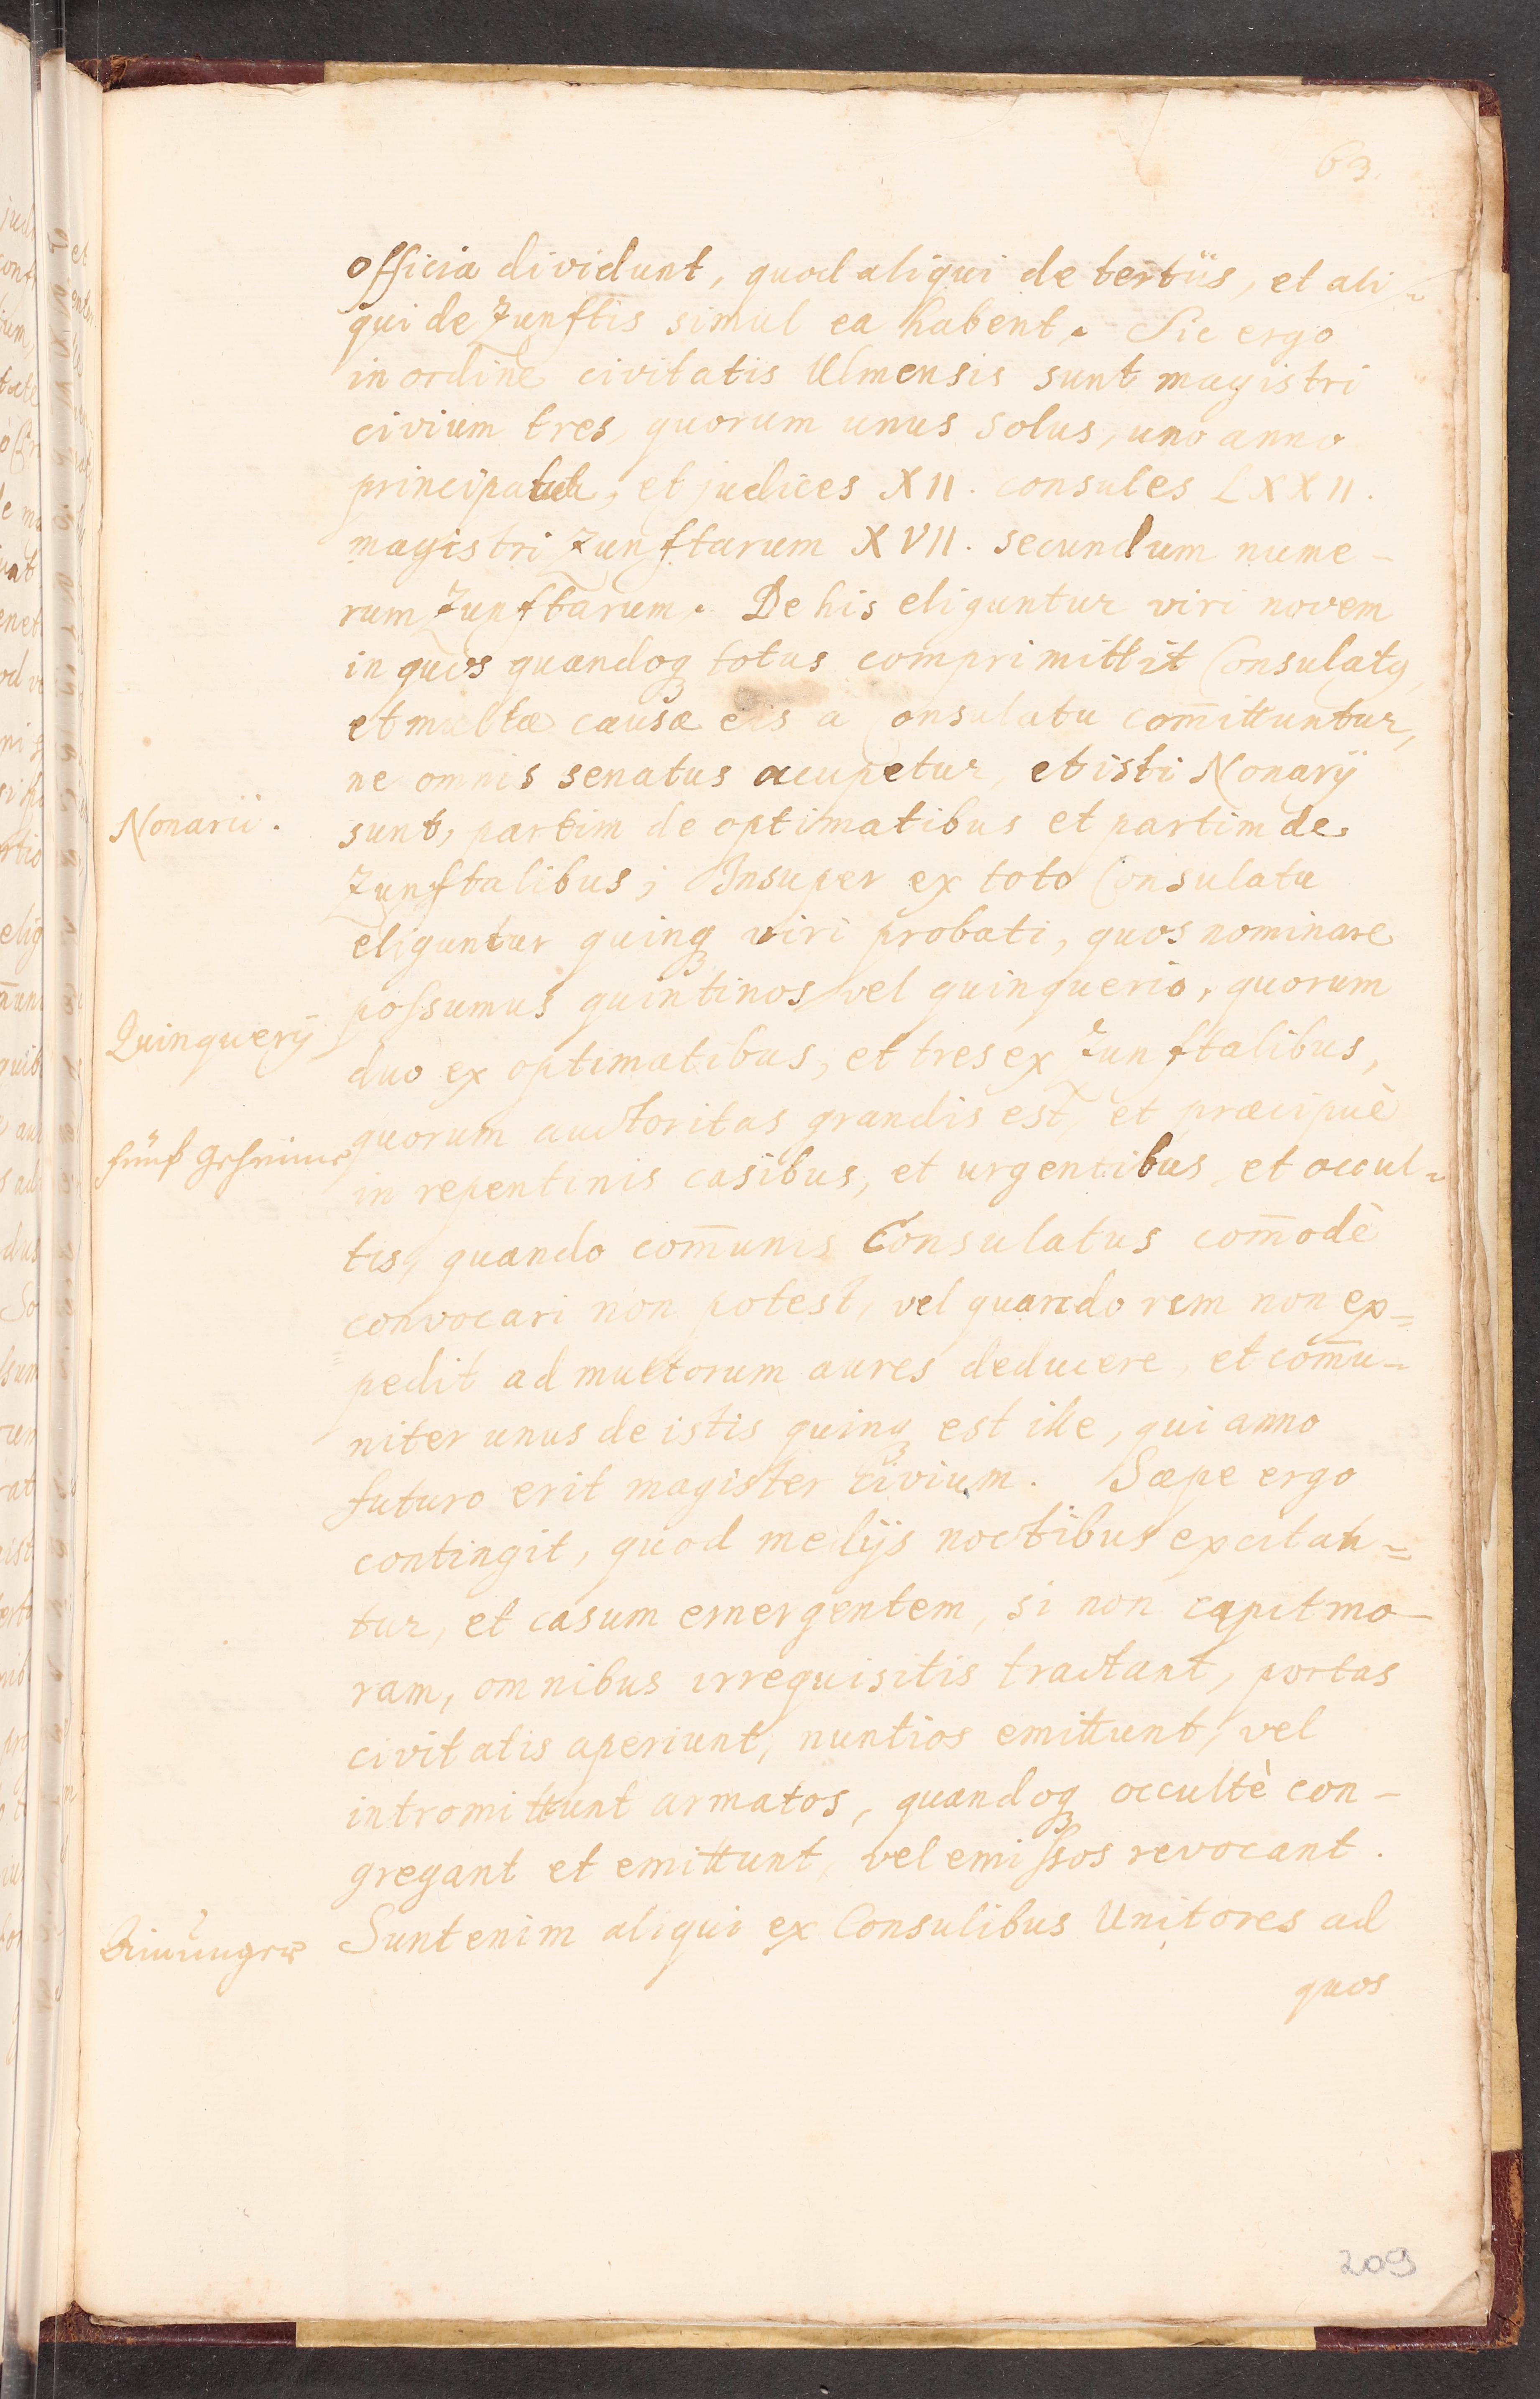 63.
officia dividunt, quod aliqui de tertiis, et ali-
qui de Zunftis simul ea habent. Sic ergo
in ordine civitatis Ulmensis sunt magistri
civium tres, quorum unus solus, uno anno
principatur, et judices XII. consules LXXII.
magistri Zunftarum XVII. secundum nume-
rum Zunftarum. De his eliguntur viri novem
in quos quandoqꝫ totus comprimittit Consulatꝰ,
et multæ causæ eis a Consulatu com̄ittuntur,
ne omnis senatus acupetur, et isti Nonarij
Nonarii.
sunt, partim de optimatibus et partim de
Zunftalibus; Insuper ex toto Consulatu
eliguntur quinqꝫ viri probati, quos nominare
possumus quintinos vel quinquerio, quorum
Quinquerij
duo ex optimatibus, et tres ex Zunftalibus,
quorum auctoritas grandis est, et præcipuè
fünf Geheime
in repentinis casibus, et urgentibus, et occul-
tis, quando com̄unis Consulatus com̄odè
convocari non potest, vel quando rem non ex=
pedit ad multorum aures deducere, et com̄u-
niter unus de istis quinqꝫ est ille, qui anno
futuro erit magister civium. Sæpe ergo
contingit, quod medijs noctibus excitan=
tur, et casum emergentem, si non capit mo-
ram, omnibus irrequisitis tractant, portas
civitatis aperiunt, nuntios emittunt, vel
intromittunt armatos, quandoqꝫ occultè con-
gregant et emittunt, vel emissos revocant.
Ainunger
Sunt enim aliqui ex Consulibus Unitores ad
quos
209